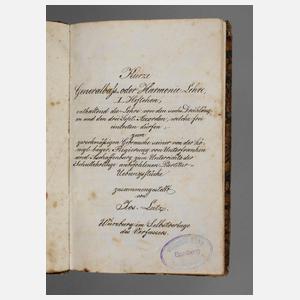 Kurze
Generalbaß- oder Harmonie-Lehre,
I. Heftchen,
enthaltend die Lehre von den sechs Dreiklängen
und den drei Sept-Accorden, welche frei
eintreten dürfen,
zum
zweckmäßigen Gebrauche seiner von der kö-
nigl. bayer. Regierung von Unterfranken
und Aschaffenburg zum Unterrichte der
Schullehrlinge anbefohlenen Partitur-
Uebungsstücke
zusammengestellt
von
Jos. Lutz.
Würzburg im Selbstverlage
des Verfassers.
Bamberg